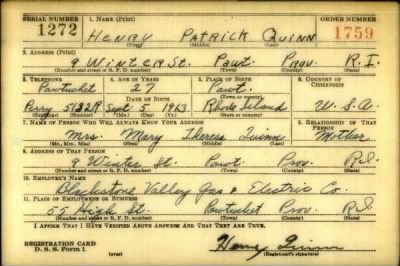 SERIAL NUMBER 1. NAME (Print) ORDER NUMBER
1272 HENRY PATRICK QUINN 1759
(First) (Middle) (Last)
2. ADDRESS (Print)
9 WINTER St. Pawt. Prov. R.I.
(Number and street or R. F. D. number) (Town) (County) (State)
3. TELEPHONE 4. AGE IN YEARS 5. PLACE OF BIRTH 6. COUNTRY OF CITIZENSHIP
Pawtucket 27 Pawt.
DATE OF BIRTH (Town or county)
Perry Sept. 5 1913 Rhode Island U.S.A.
(Exchange) (Number) (Mo.) (Day) (Yr.) (State or country)
7. NAME OF PERSON WHO WILL ALWAYS KNOW YOUR ADDRESS 8. RELATIONSHIP OF THAT PERSON
Mrs. Mary Theresa Quinn Mother
(Mr., Mrs., Miss) (First) (Middle) (Last)
9. ADDRESS OF THAT PERSON
9 Winter St. Pawt. Prov. R.I.
(Number and street or R. F. D. number) (Town) (County) (State)
10. EMPLOYER'S NAME
Blackstone Valley Gas & Electric Co.
11. PLACE OF EMPLOYMENT OR BUSINESS
55 High St. Pawtucket Prov. R.I.
(Number and street or R. F. D. number) (Town) (County) (State)
I AFFIRM THAT I HAVE VERIFIED ABOVE ANSWERS AND THAT THEY ARE TRUE.
REGISTRATION CARD
D. S. S. Form 1 Henry Quinn
(Registrant's signature)